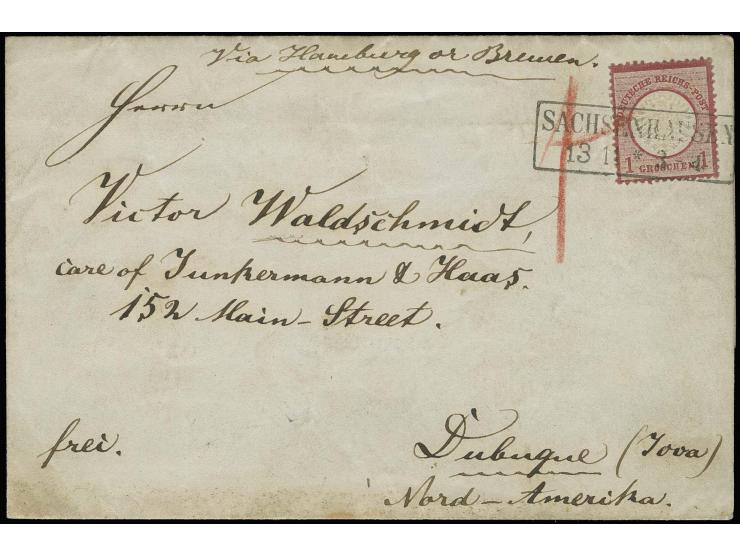 Via Hamburg or Bremen.
Herrn
DEUTSCHE REICHS-POST
1 GROSCHEN 1
SACHSENHAUSEN
13
Victor Waldschmidt,
care of Junkermann & Haas.
152 Main-Street.
frei.
Dubuque (Iova)
Nord-Amerika.